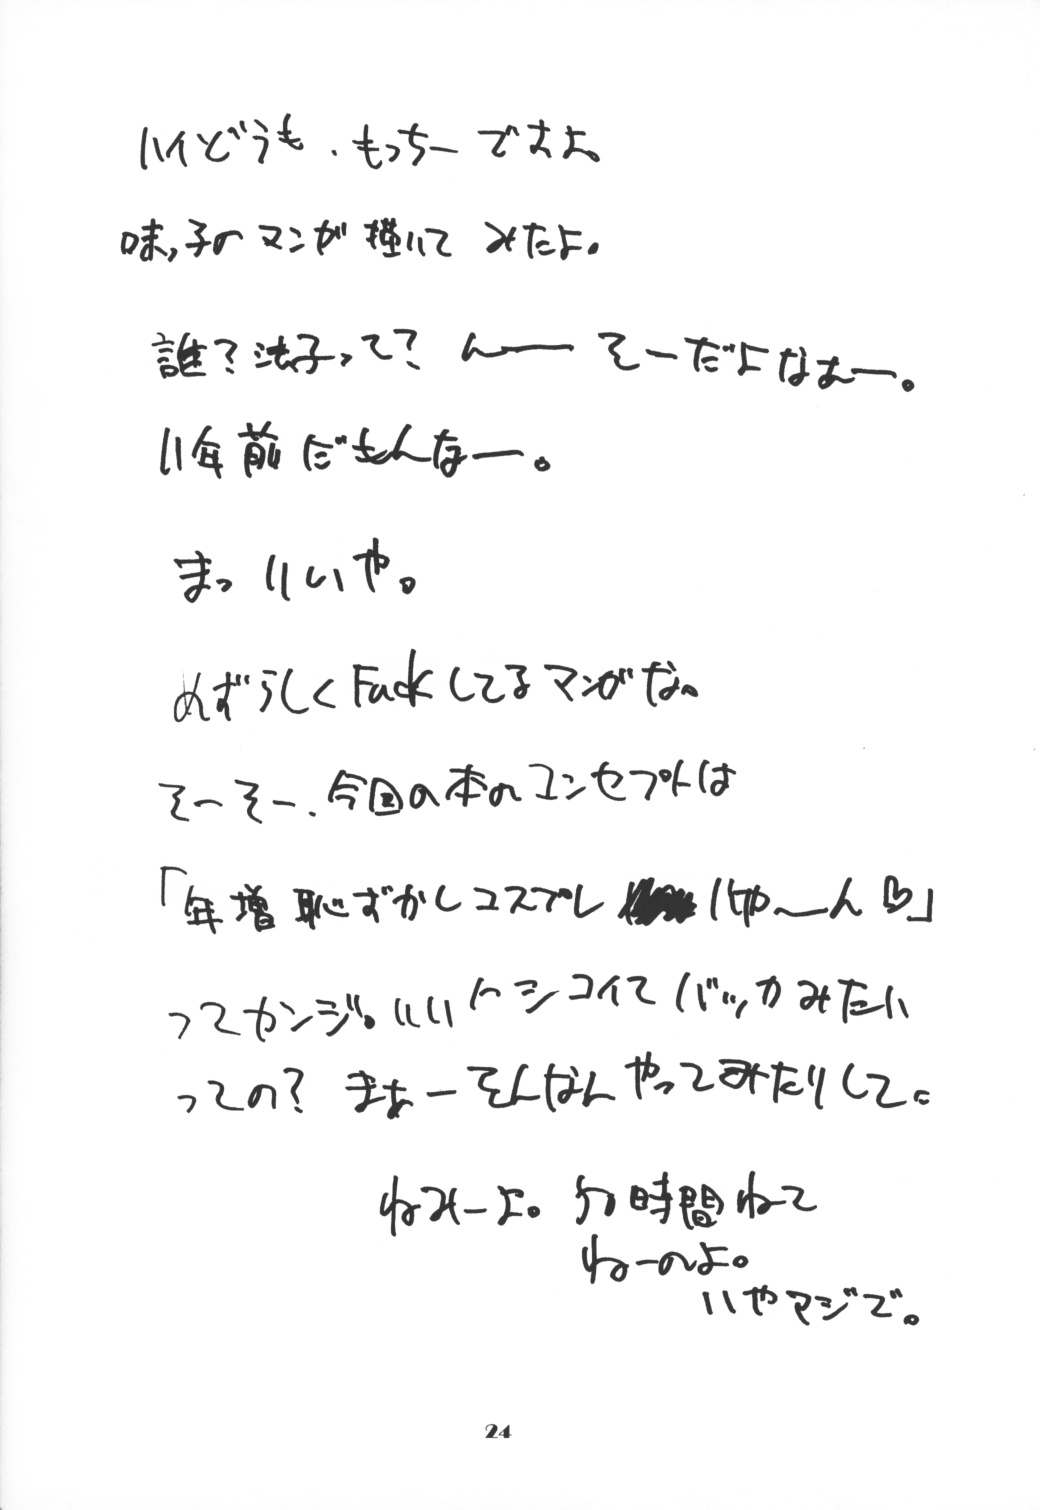 ハイどうも、もっちーですよ。
味っ子のマンガ描いてみたよ。
誰?法子って?んーーそーだよなぁー。
11年前だもんなー。
まっいいや。
めずらしくFuckしてるマンガな。
そーそー、今回の本のコンセプトは
「年増恥ずかしコスプレ いやーん♡」
ってカンジ。いいトシコイてバッカみたい
っての?まぁーそんなんやってみたりして。
ねみーよ。50時間ねて
ねーのよ。
いやマジで。
24